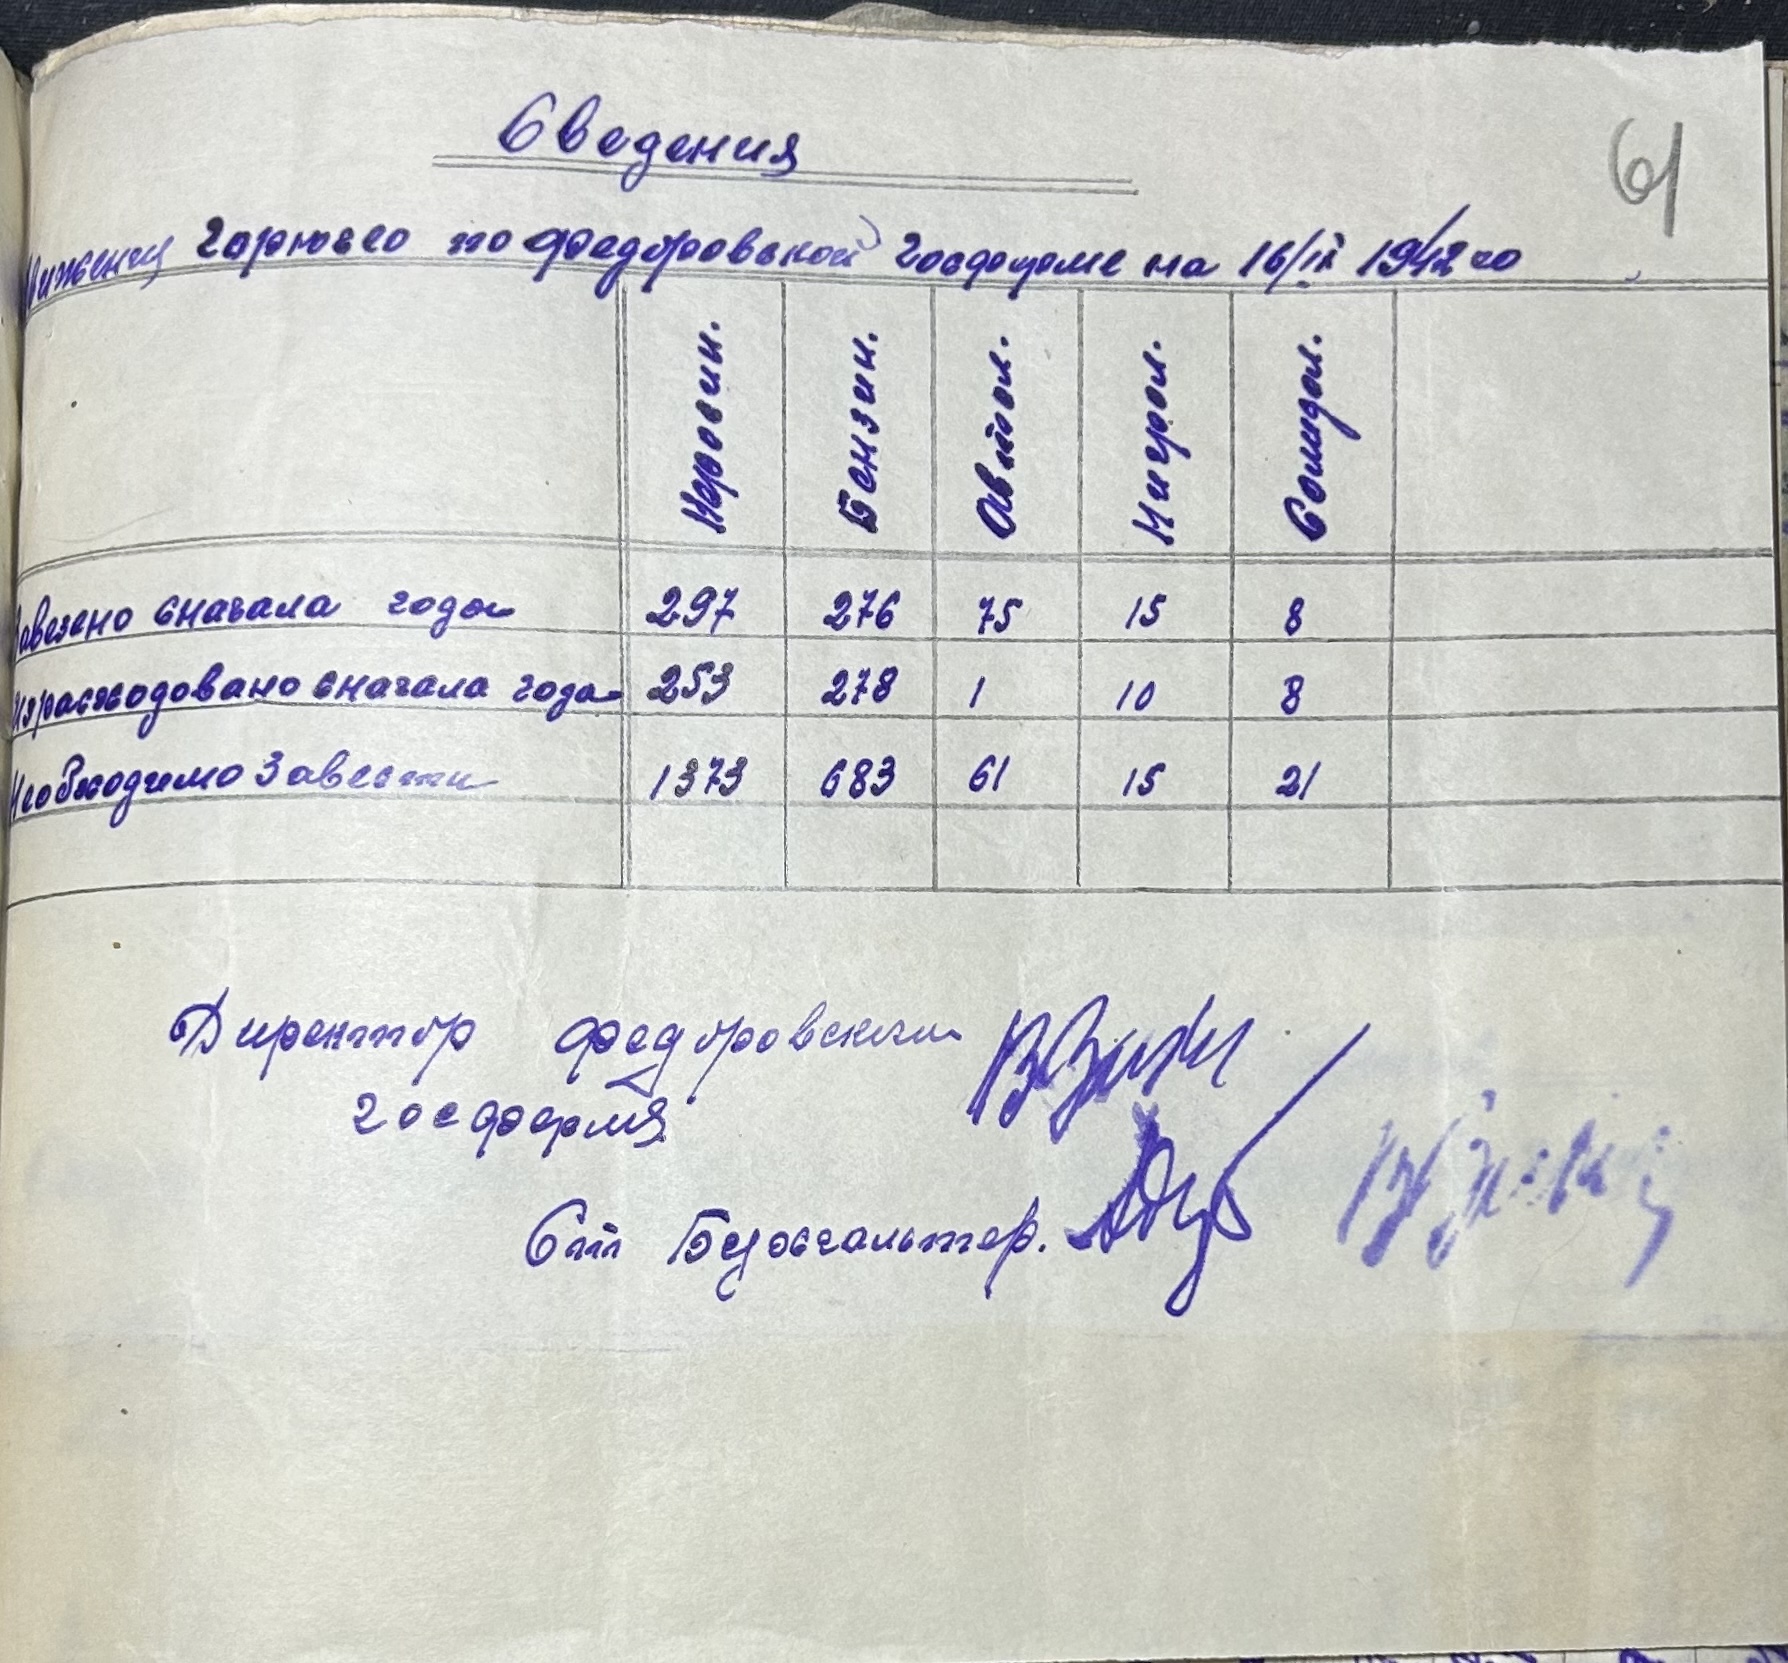 Сведения
61
движения горючего по Федоровской Госферме на 16/IX 1942 го
Керосин. Бензин. Автол. Нигрол. Солидол.
Завезено сначала года 297 276 75 15 8
Израсходовано сначала года 253 278 1 10 8
Необходимо Завести 1373 683 61 15 21
Директор Федоровский
госфермя
Ст Бухгальтер.